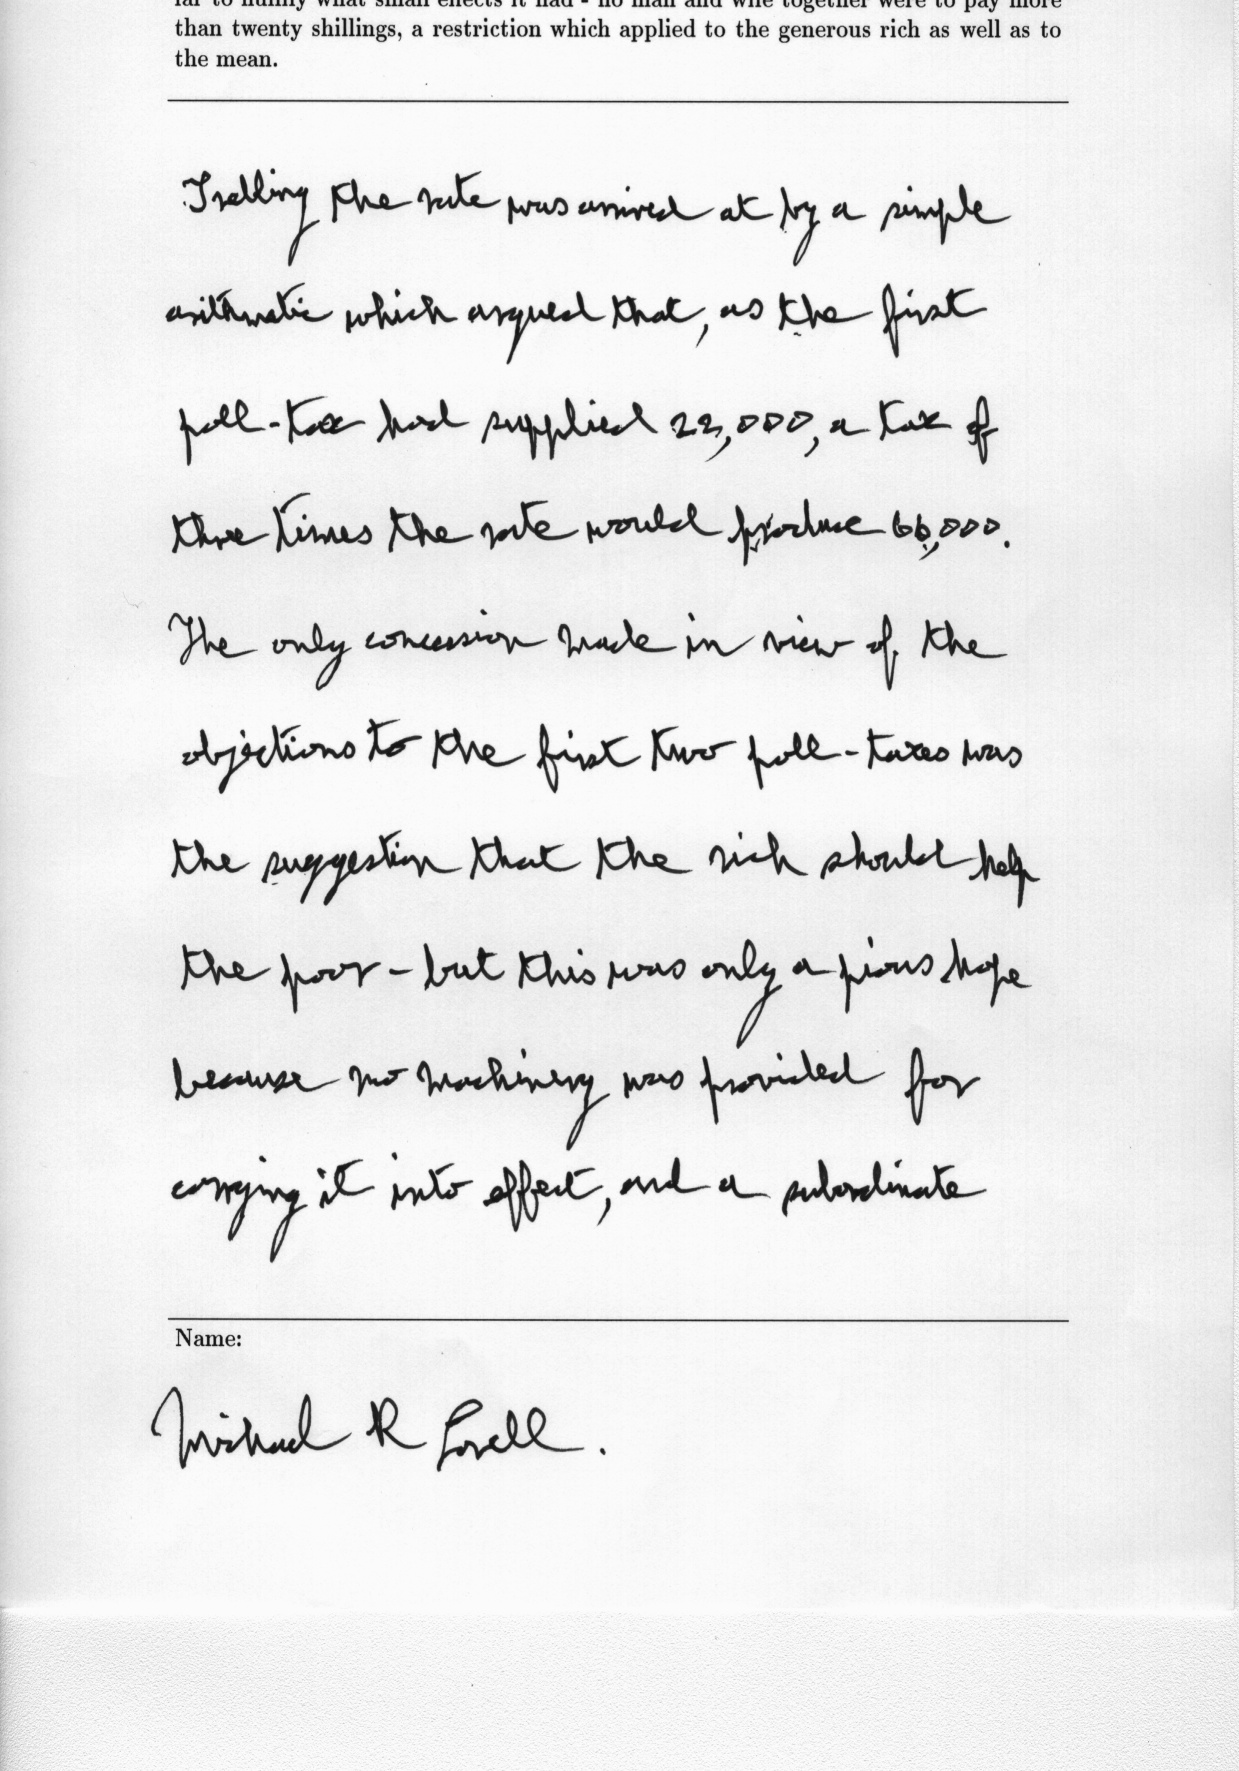 far to nullify what small effects it had - no man and wife together were to pay more
than twenty shillings, a restriction which applied to the generous rich as well as to
the mean.
Trebling the rate was arrived at by a simple
arithmetic which argued that, as the first
poll-tax had supplied 22,000, a tax of
three times the rate would produce 66,000.
The only concession made in view of the
objections to the first two poll-taxes was
the suggestion that the rich should help
the poor - but this was only a pious hope
because no machinery was provided for
carrying it into effect, and a subordinate
Name:
Michael R Lovell.